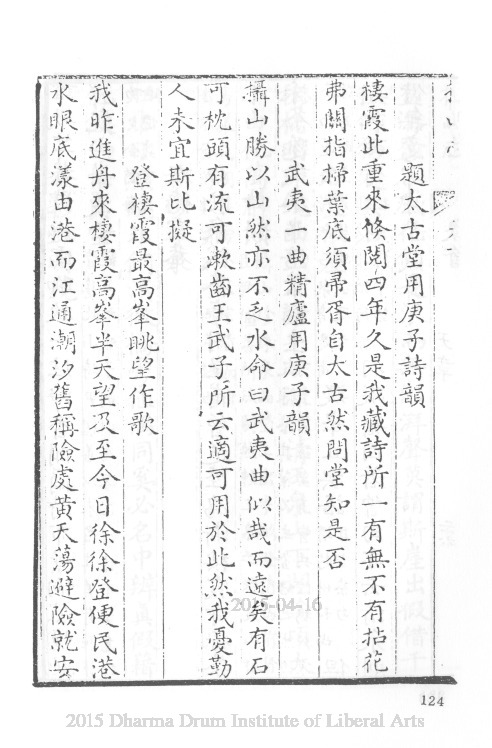 題太古堂用庚子詩韻
棲霞此重來倏閱四年久是我藏詩所一有無不有拈花
弗關指掃葉底須帚胥自太古然問堂知是否
武夷一曲精廬用庚子韻
攝山勝以山然亦不乏水命曰武夷曲似哉而遠矣有石
可枕頭有流可漱齒王武子所云適可用於此然我憂勤
人未宜斯比擬
登棲霞最高峯眺望作歌
我昨進舟來棲霞高峯半天望及至今日徐徐登便民港
水眼底漾由港而江通潮汐舊稱險處黃天蕩避險就安
2015-04-16
124
2015 Dharma Drum Institute of Liberal Arts